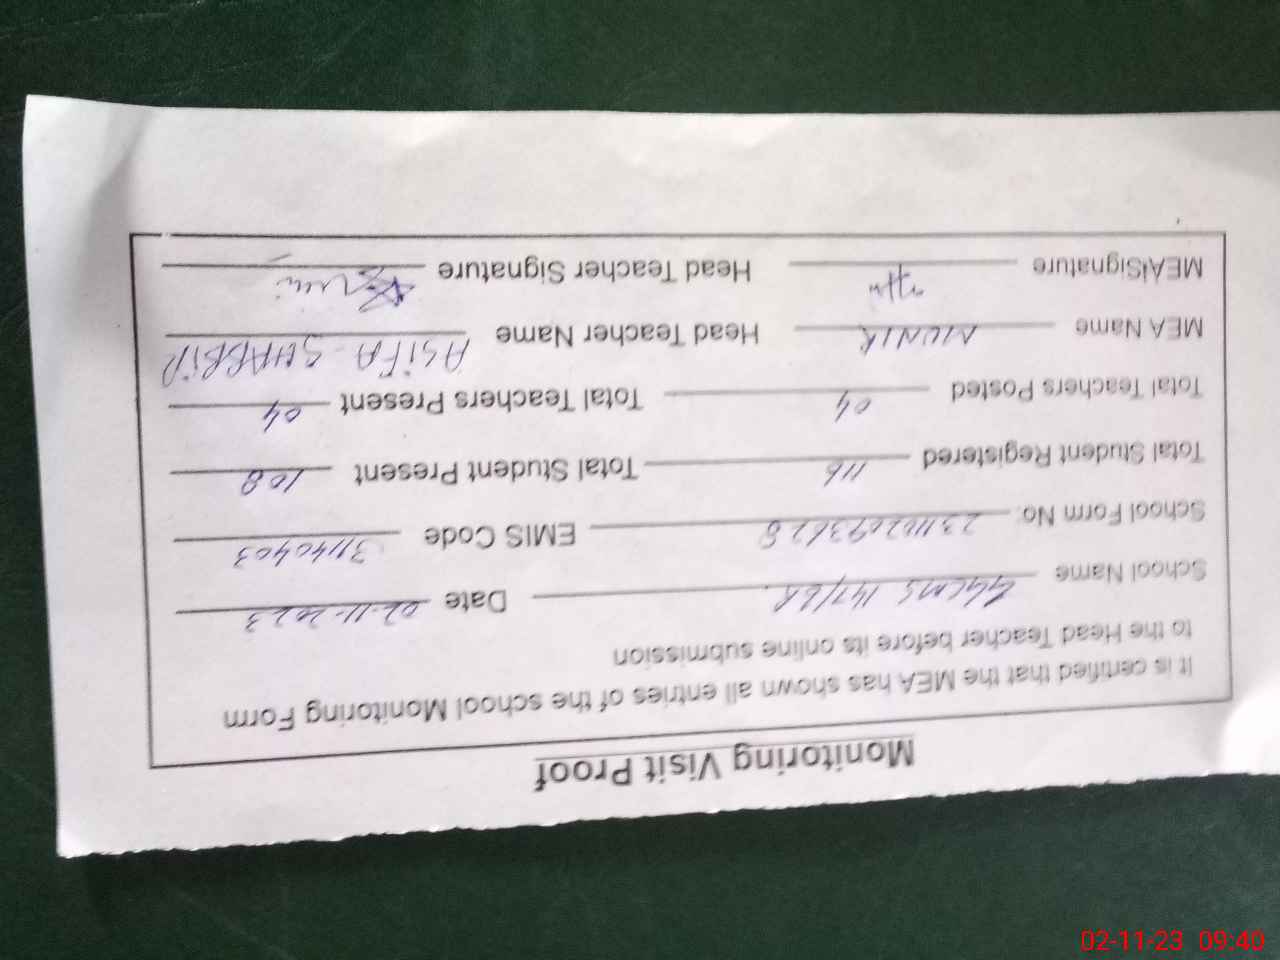 Monitoring Visit Proof
It is certified that the MEA has shown all entries of the school Monitoring Form
to the Head Teacher before its online submission
School Name GGCMS 147/6R. Date 02-11-2023
School Form No. EMIS Code 31140403
Total Student Registered 116 Total Student Present 108
Total Teachers Posted 04 Total Teachers Present 04
MEA Name MUNIR Head Teacher Name ASIFA SHABBIR
MEA Signature Head Teacher Signature
02-11-23 09:40